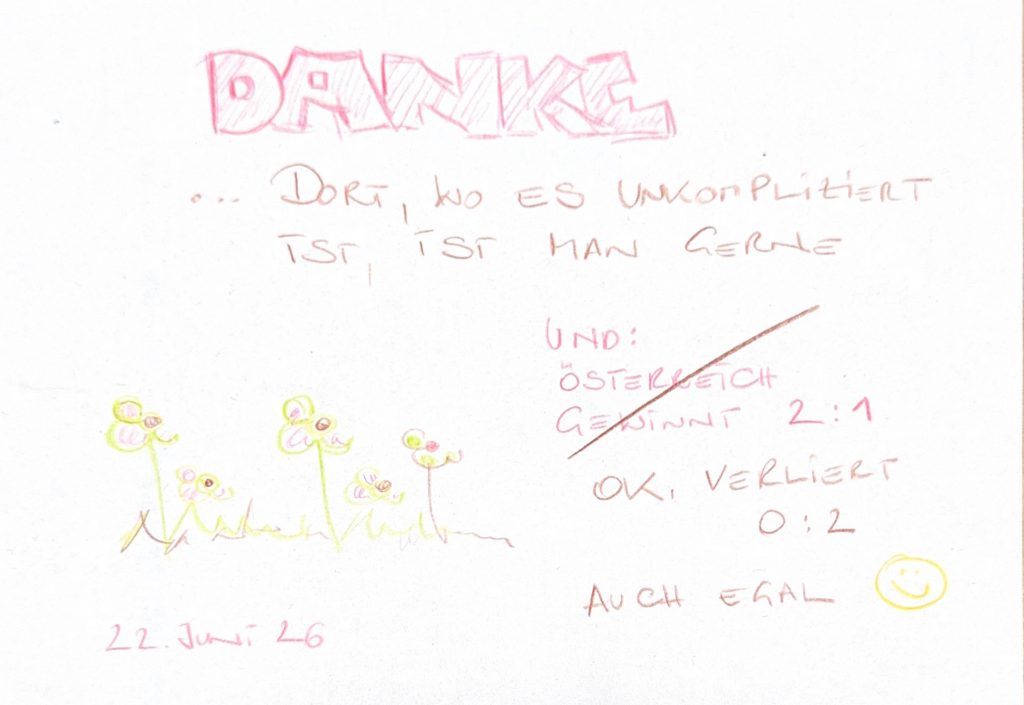 DANKE
... DORT, WO ES UNKOMPLIZIERT
IST, IST MAN GERNE
UND:
ÖSTERREICH
GEWINNT 2:1
OK, VERLIERT
0:2
AUCH EGAL
22. JUNI 26